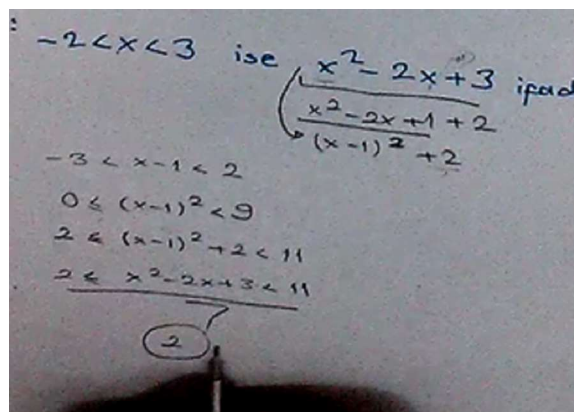 -2 < x < 3 ise x² - 2x + 3
x² - 2x + 1 + 2
(x-1)² + 2
-3 < x-1 < 2
0 ≤ (x-1)² < 9
2 ≤ (x-1)² + 2 < 11
2 ≤ x² - 2x + 3 < 11
2